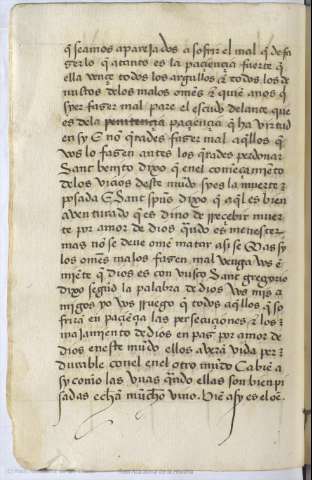 q̃ seamos aparejados a sofrir el mal q̃ desa
gerlo q̃ atanto es la paçiençia fuerte q̃
ella vençe todos los argullos & todos los de
nustos de los malos omẽs & quiẽ a nos q̃
syer faser mal pare el escudo delante que
es de la penitençia paçiençia q̃ ha virtud
en sy & no q̃rades faser mal aq̃llos q̃
vos lo fasen antes los q̃rades perdonar
Sant benito dixo q̃ en el comẽcamiẽto
de los viçios deste mũdo yase la muerte &
posada & Sant dixo q̃ aq̃l es bien
aventurado q̃ es dino de rreçebir muer
te por amor de dios qñdo es menester
mas no se deve ome matar asi se Mas sy
los omẽs malos fasen mal venga vos ẽ
miẽte q̃ dios es con vusco Sant gregorio
dixo segũd la palabra de dios vos mis a
migos yo vos rruego q̃ todos aq̃llos q̃ so
frirã en paçiẽçia las perseguçiones & los
majamiento de dios en pas por amor de
dios en este mũdo ellos averã vida per
durable con el en el otro mũdo Ca bie
asy como las uvas qñdo ellas son bien pi
sadas echã mucho vino. Biẽ asy es el oẽ.
Real Academia de la Historia